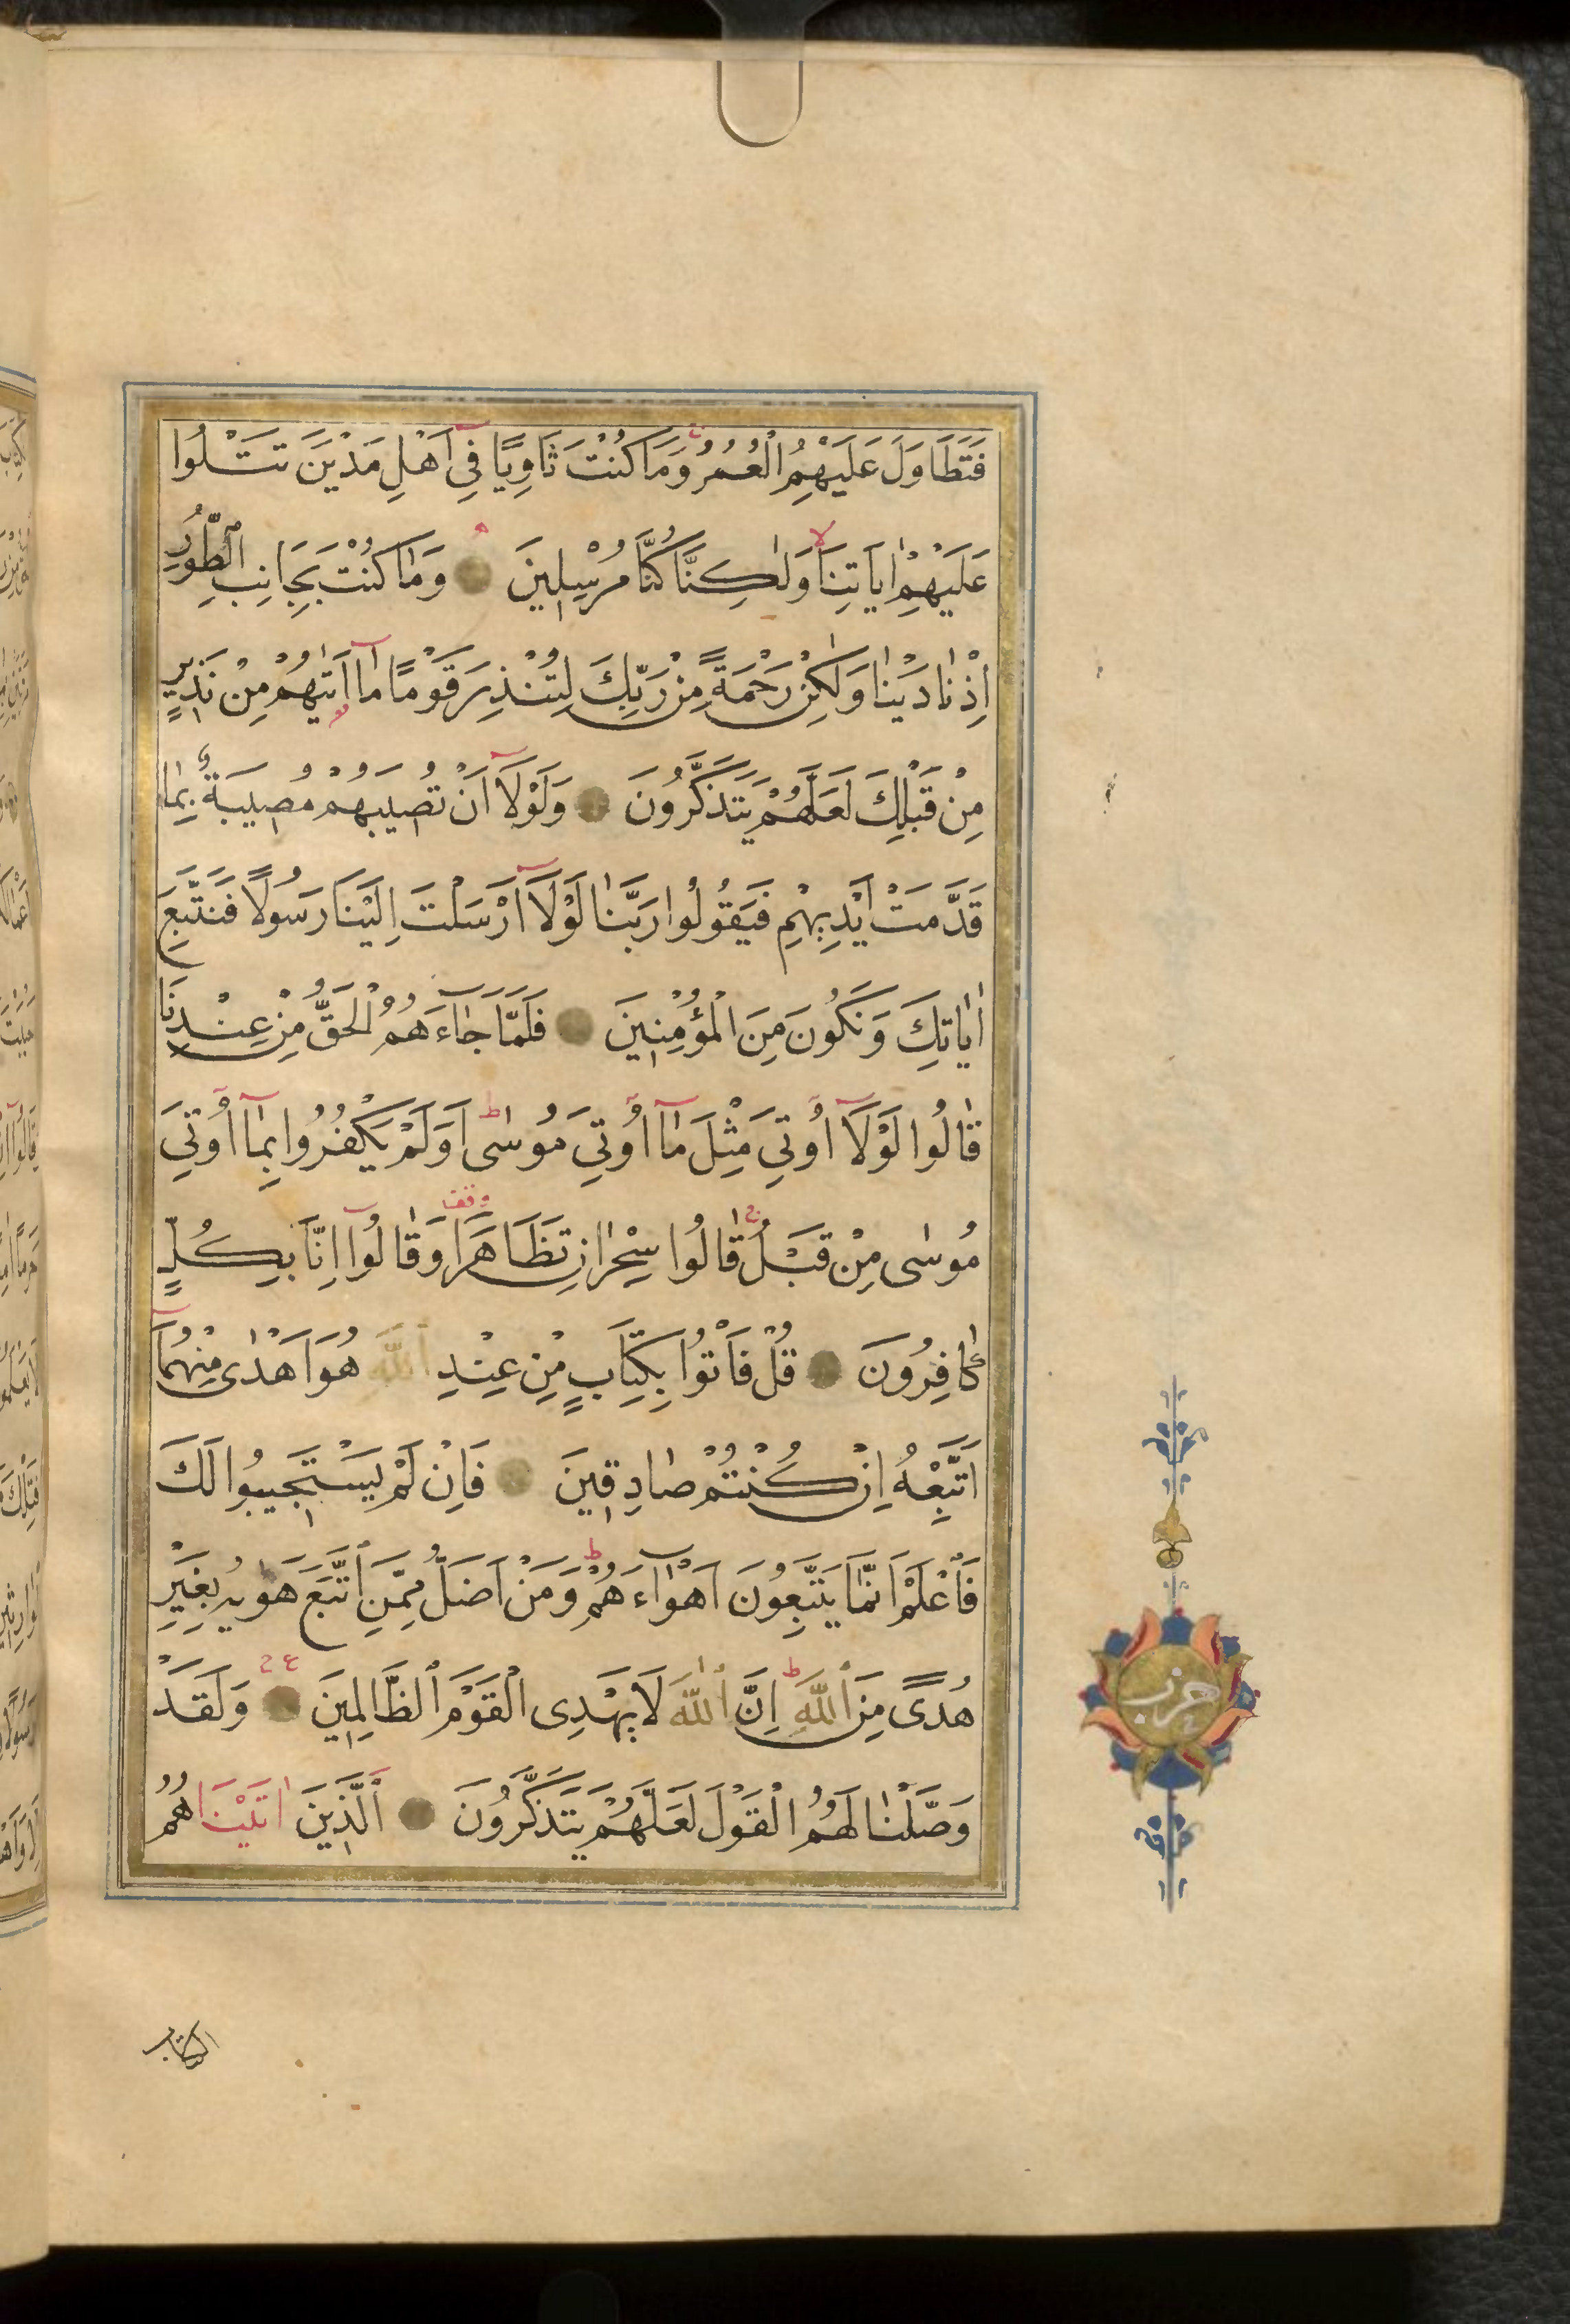 فَتَطَاوَلَ عَلَيْهِمُ الْعُمُرُ وَمَا كُنْتَ ثَاوِيًا فِي اَهْلِ مَدْيَنَ تَتْلُوا
عَلَيْهِمْ اٰيَاتِنَا وَلٰكِنَّا كُنَّا مُرْسِلِينَ وَمَا كُنْتَ بِجَانِبِ الطُّورِ
اِذْ نَادَيْنَا وَلٰكِنْ رَحْمَةً مِنْ رَبِّكَ لِتُنْذِرَ قَوْمًا مَا اَتٰيهُمْ مِنْ نَذِيرٍ
مِنْ قَبْلِكَ لَعَلَّهُمْ يَتَذَكَّرُونَ وَلَوْلَا اَنْ تُصِيبَهُمْ مُصِيبَةٌ بِمَا
قَدَّمَتْ اَيْدِيهِمْ فَيَقُولُوا رَبَّنَا لَوْلَا اَرْسَلْتَ اِلَيْنَا رَسُولًا فَنَتَّبِعَ
اٰيَاتِكَ وَنَكُونَ مِنَ الْمُؤْمِنِينَ فَلَمَّا جَاءَهُمُ الْحَقُّ مِنْ عِنْدِنَا
قَالُوا لَوْلَا اُوتِيَ مِثْلَ مَا اُوتِيَ مُوسٰى اَوَلَمْ يَكْفُرُوا بِمَا اُوتِيَ
مُوسٰى مِنْ قَبْلُ قَالُوا سِحْرَانِ تَظَاهَرَا وَقَالُوا اِنَّا بِكُلٍّ
كَافِرُونَ قُلْ فَأْتُوا بِكِتَابٍ مِنْ عِنْدِ اللّٰهِ هُوَ اَهْدٰى مِنْهُمَا
اَتَّبِعْهُ اِنْ كُنْتُمْ صَادِقِينَ فَاِنْ لَمْ يَسْتَجِيبُوا لَكَ
فَاعْلَمْ اَنَّمَا يَتَّبِعُونَ اَهْوَاءَهُمْ وَمَنْ اَضَلُّ مِمَّنِ اتَّبَعَ هَوٰيهُ بِغَيْرِ
هُدًى مِنَ اللّٰهِ اِنَّ اللّٰهَ لَا يَهْدِى الْقَوْمَ الظَّالِمِينَ وَلَقَدْ
وَصَّلْنَا لَهُمُ الْقَوْلَ لَعَلَّهُمْ يَتَذَكَّرُونَ اَلَّذِينَ اٰتَيْنَاهُمُ
حزب
الكتاب